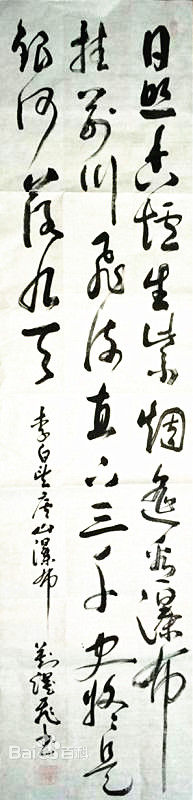 日照香爐生紫烟遙看瀑布
挂前川飛流直下三千尺疑是
銀河落九天
李白望庐山瀑布
Bai百科